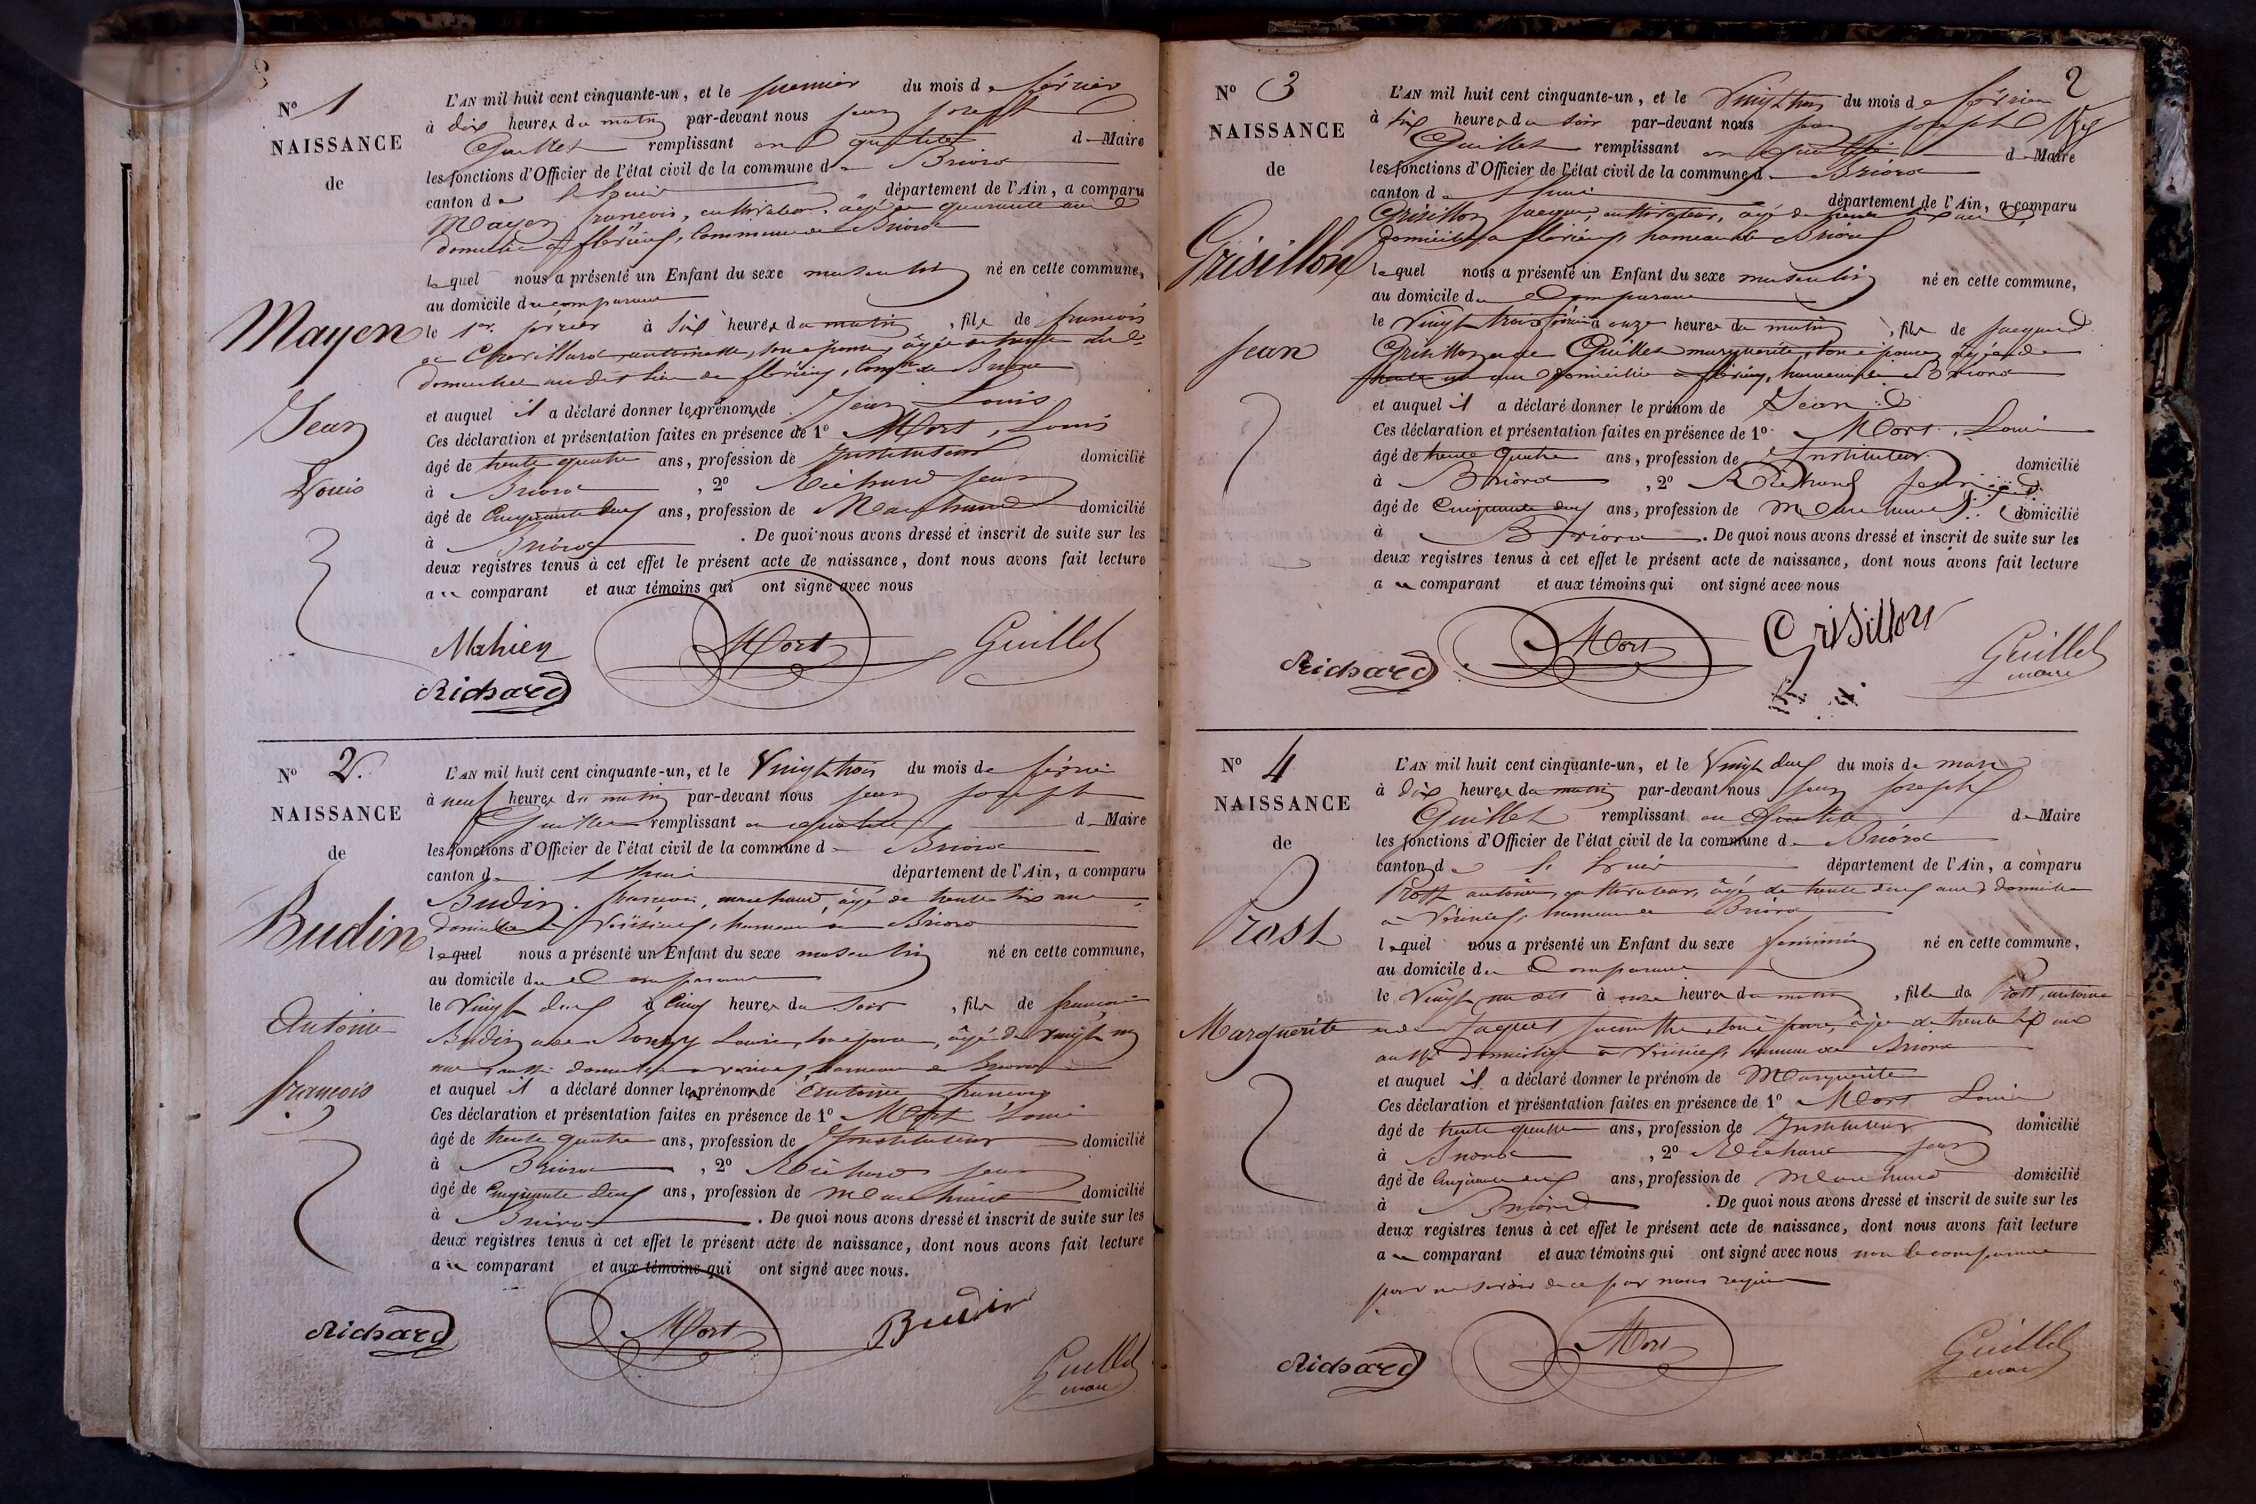 8
N° 1
NAISSANCE
de
Mayen
Jean
Louis
L'AN mil huit cent cinquante-un, et le premier du mois de février
à dix heures du matin par-devant nous jean joseph
Guillet remplissant en qualité de Maire
les fonctions d'Officier de l'état civil de la commune de Briord
canton de Lhuis département de l'Ain, a comparu
Mayen françois, cultivateur, âgé de quarante ans
domicilié à flérieu, commune de Briord
lequel nous a présenté un Enfant du sexe masculin né en cette commune,
au domicile du comparant
le 1er février à six heures du matin, fils de françois
et Chavillard antoinette, son épouse, âgée de trente
domiciliée au dit lieu de flérieu, Comne de Briord
et auquel il a déclaré donner les prénoms de Jean Louis
Ces déclaration et présentation faites en présence de 1° Mort, Louis
âgé de trente quatre ans, profession de Instituteur domicilié
à Briord, 2° Richard jean
âgé de Cinquante deux ans, profession de Marchand domicilié
à Briord. De quoi nous avons dressé et inscrit de suite sur les
deux registres tenus à cet effet le présent acte de naissance, dont nous avons fait lecture
au comparant et aux témoins qui ont signé avec nous
Mahien Mort Guillet
Richard
N° 2.
NAISSANCE
de
Budin
Antoine
françois
L'AN mil huit cent cinquante-un, et le Vingt trois du mois de février
à neuf heures du matin par-devant nous jean joseph
Guillet remplissant en qualité de Maire
les fonctions d'Officier de l'état civil de la commune de Briord
canton de Lhuis département de l'Ain, a comparu
Budin françois, marchand, âgé de trente six ans
domicilié à Vérizieu, hameau de Briord
lequel nous a présenté un Enfant du sexe masculin né en cette commune,
au domicile du Comparant
le Vingt deux à Cinq heures du soir, fils de françois
Budin et de Louise, son épouse, âgée de Vingt
ans aussi domiciliée à hameau de Briord
et auquel il a déclaré donner les prénoms de Antoine françois
Ces déclaration et présentation faites en présence de 1° Mort Louis
âgé de trente quatre ans, profession de Instituteur domicilié
à Briord, 2° Richard jean
âgé de Cinquante deux ans, profession de Marchand domicilié
à Briord. De quoi nous avons dressé et inscrit de suite sur les
deux registres tenus à cet effet le présent acte de naissance, dont nous avons fait lecture
au comparant et aux témoins qui ont signé avec nous.
Richard Mort Budin
Guillet
maire
2
N° 3
NAISSANCE
de
Grisillon
jean
L'AN mil huit cent cinquante-un, et le Vingt trois du mois de février
à six heures du soir par-devant nous jean joseph
Guillet remplissant en qualité de Maire
les fonctions d'Officier de l'état civil de la commune de Briord
canton de Lhuis département de l'Ain, a comparu
Grisillon jacques, cultivateur, âgé de trente six ans
domicilié à flérieu, hameau de Briord
lequel nous a présenté un Enfant du sexe masculin né en cette commune,
au domicile du Comparant
le Vingt trois février à onze heures du matin, fils de jacques
Grisillon et de Guillet marguerite, son épouse, âgée de
trente un ans domiciliée à flérieu, hameau de Briord
et auquel il a déclaré donner le prénom de Jean
Ces déclaration et présentation faites en présence de 1° Mort, Louis
âgé de trente Quatre ans, profession de Instituteur domicilié
à Briord, 2° Richard jean
âgé de Cinquante deux ans, profession de Marchand domicilié
à Briord. De quoi nous avons dressé et inscrit de suite sur les
deux registres tenus à cet effet le présent acte de naissance, dont nous avons fait lecture
au comparant et aux témoins qui ont signé avec nous
Richard Mort Grisillon Guillet
maire
N° 4
NAISSANCE
de
Prost
Marguerite
L'AN mil huit cent cinquante-un, et le Vingt deux du mois de mars
à dix heures du matin par-devant nous jean joseph
Guillet remplissant en Qualité de Maire
les fonctions d'Officier de l'état civil de la commune de Briord
canton de Lhuis département de l'Ain, a comparu
Prost antoine, cultivateur, âgé de trente deux ans domicilié
à Vérizieu, hameau de Briord
lequel nous a présenté un Enfant du sexe féminin né en cette commune,
au domicile du Comparant
le Vingt un dit à onze heures du matin, fille de Prost, antoine
et de Jaquet jeannette, son épouse, âgée de trente six ans
aussi domiciliée à Vérizieu, hameau de Briord
et auquel il a déclaré donner le prénom de Marguerite
Ces déclaration et présentation faites en présence de 1° Mort Louis
âgé de trente quatre ans, profession de Instituteur domicilié
à Briord, 2° Richard jean
âgé de Cinquante deux ans, profession de Marchand domicilié
à Briord. De quoi nous avons dressé et inscrit de suite sur les
deux registres tenus à cet effet le présent acte de naissance, dont nous avons fait lecture
au comparant et aux témoins qui ont signé avec nous non le comparant
pour ne savoir de ce par nous requis
Richard Mort Guillet
maire